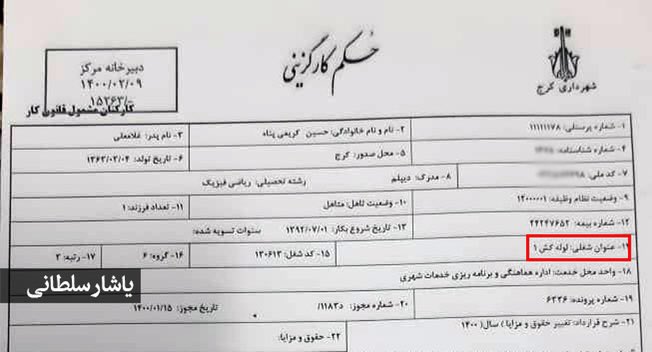 حکم کارگزینی
شهرداری کرج
دبیرخانه مرکز
۱۴۰۰/۰۲/۰۹
۱۵۲۶۳/-
کارکنان مشمول قانون کار
۱- شماره پرسنلی: ۱۱۱۱۱۱۷۸
۲- نام و نام خانوادگی: حسین کریمی پناه
۳- نام پدر: غلامعلی
۴- شماره شناسنامه:
۵- محل صدور: کرج
۶- تاریخ تولد: ۱۳۶۳/۰۲/۰۴
۷- کد ملی:
۸- مدرک: دیپلم رشته تحصیلی: ریاضی فیزیک
۹- وضعیت نظام وظیفه: ۱۲۰۰۰۰۰۱
۱۰- وضعیت تاهل: متاهل
۱۱- تعداد فرزند: ۱
۱۲- شماره بیمه: ۲۴۲۴۷۶۵۲
۱۳- تاریخ شروع بکار: ۱۳۹۲/۰۷/۰۱ سنوات تسویه شده:
۱۴- عنوان شغلی: لوله کش ۱
۱۵- کد شغل: ۱۳۰۶۱۳
۱۶- گروه: ۶
۱۷- رتبه: ۲
۱۸- واحد محل خدمت: اداره هماهنگی و برنامه ریزی خدمات شهری
۱۹- شماره پرونده: ۶۳۳۶
۲۰- شماره مجوز: د۱۱۸۳/
تاریخ مجوز: ۱۴۰۰/۰۱/۱۵
۲۱- شرح قرارداد: تغییر حقوق و مزایا ) سال( ۱۴۰۰
۲۲- حقوق و مزایا:
یاشار سلطانی